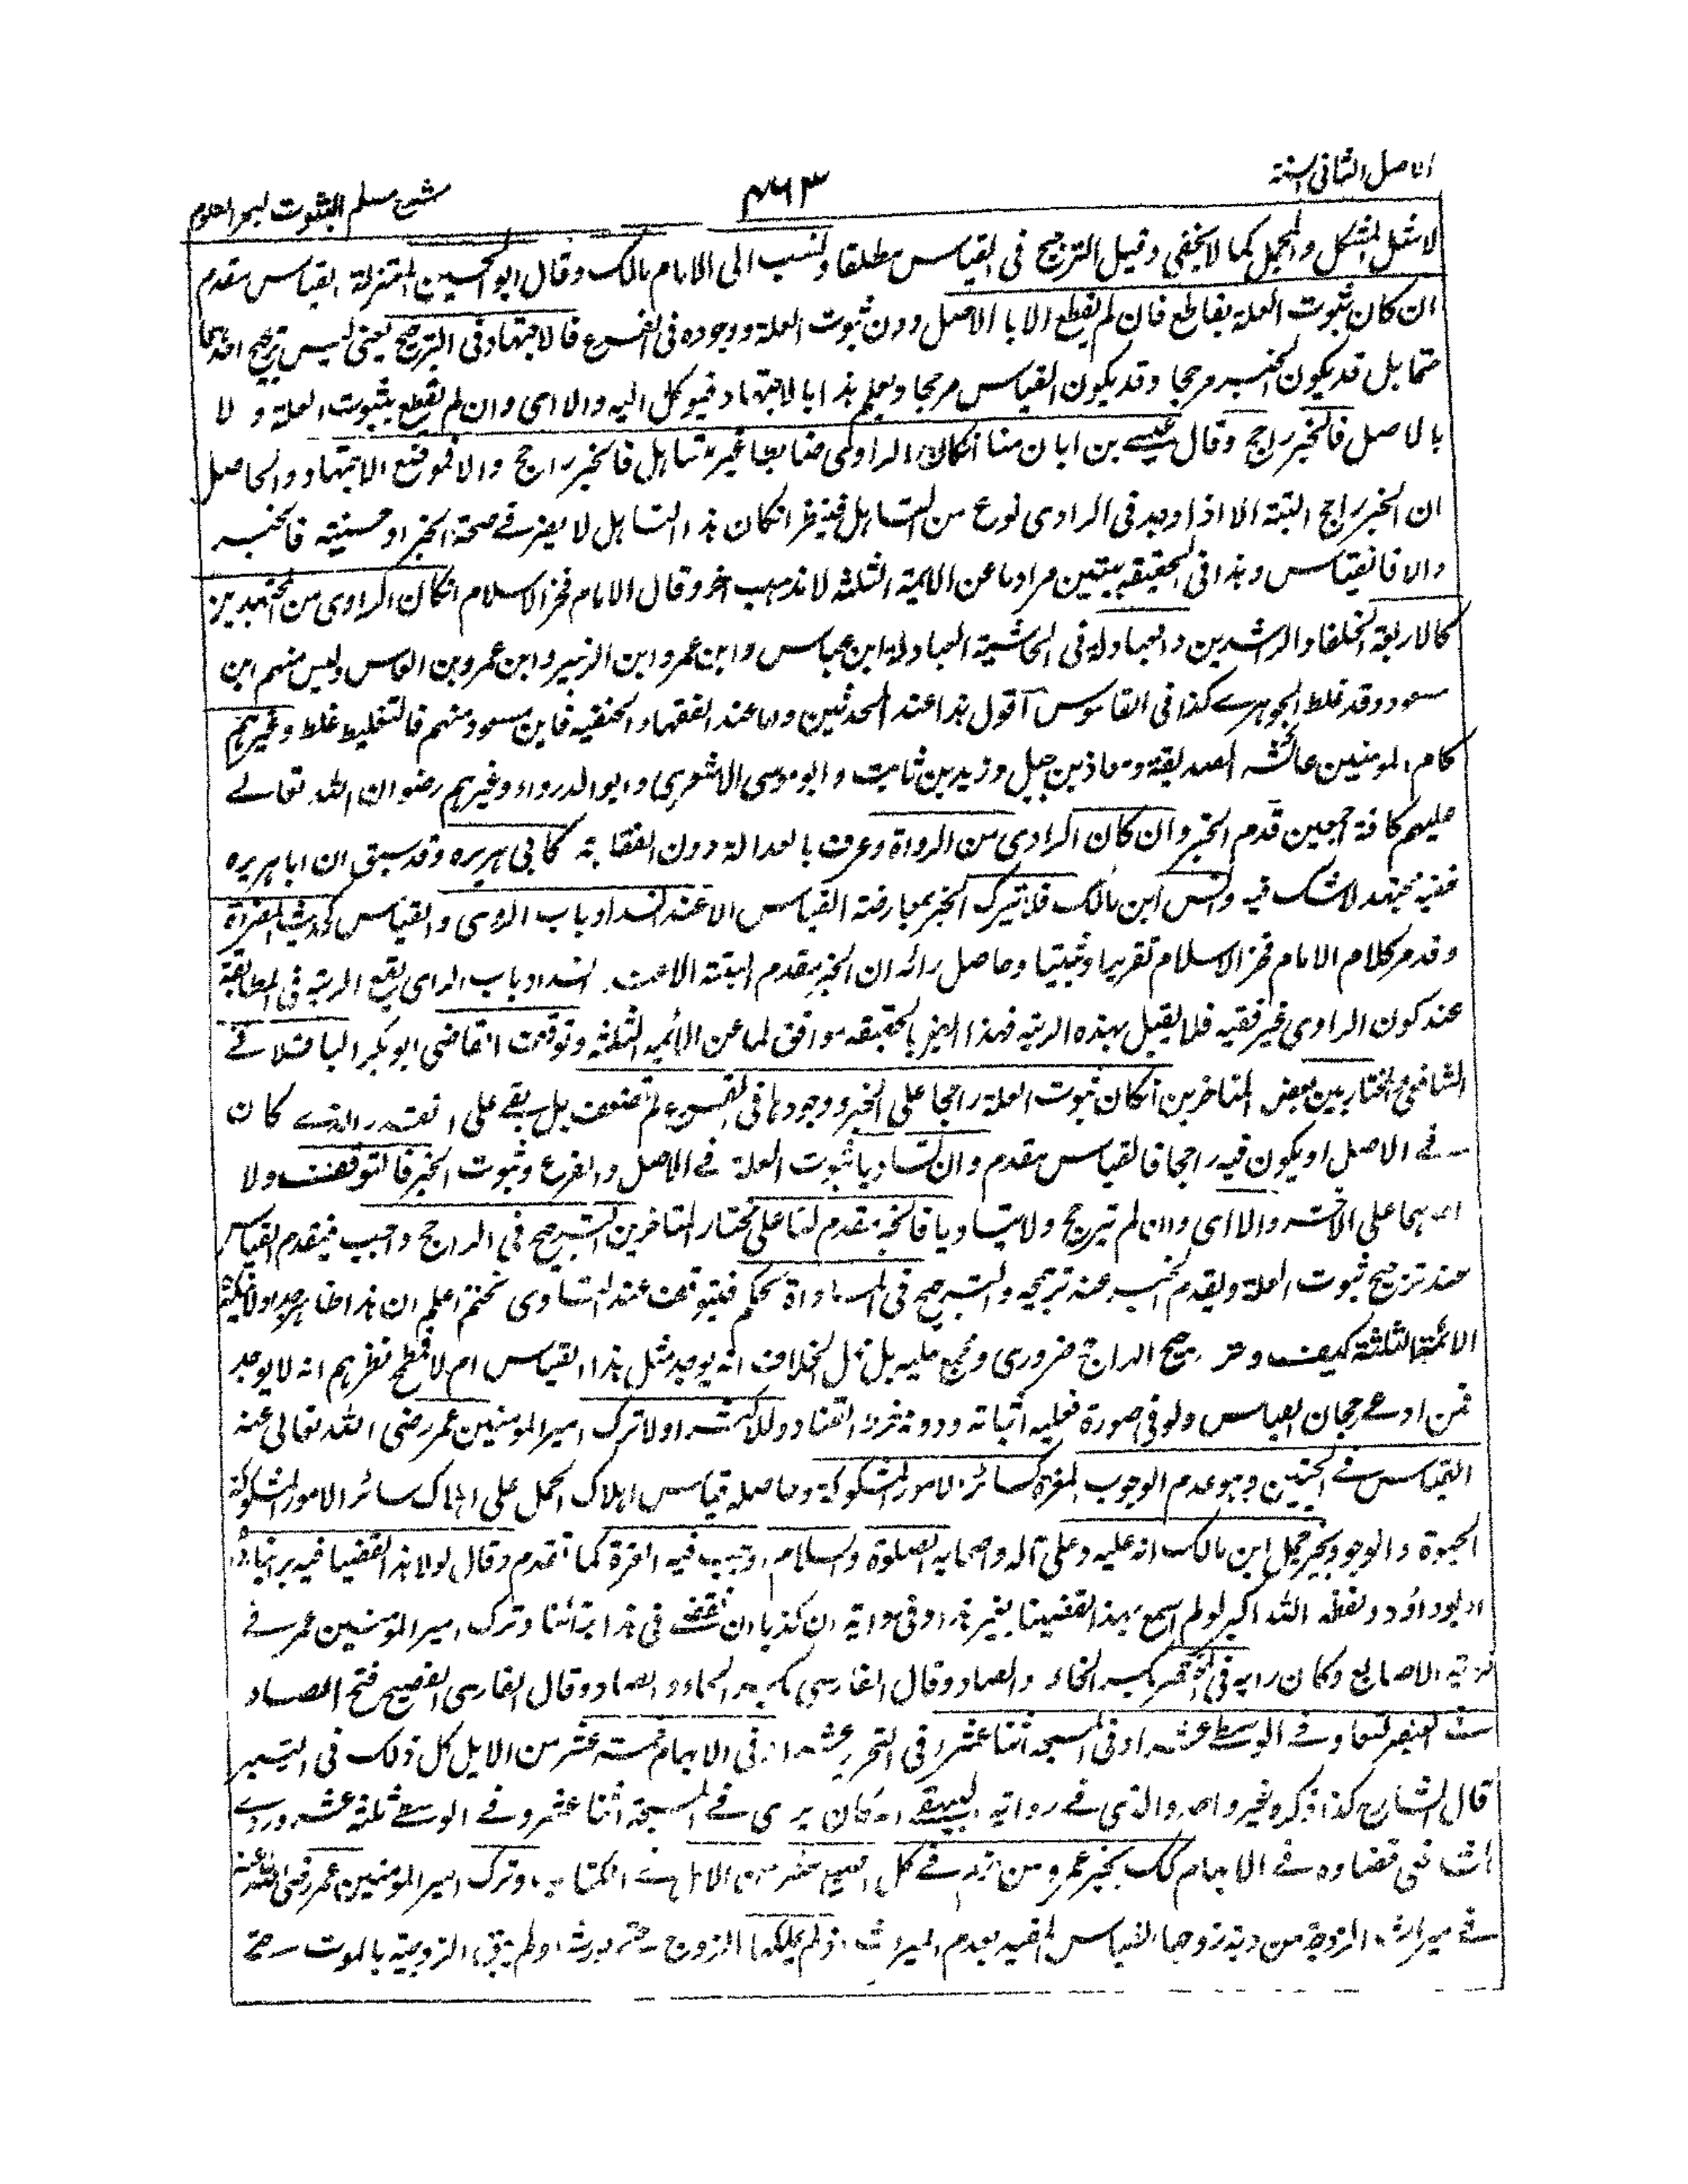 الاصل الثانی السنة
۴۶۳
شرح مسلم الثبوت لبحر العلوم
لا مثل المشکل والمجمل کما لا یخفی وقیل الترجیح فی القیاس مطلقا ونسب الی الامام مالک وقال ابو الحسین المعتزلة القیاس مقدم
ان کان ثبوت العلة بقاطع فان لم یقطع الا بالاصل دون ثبوت العلة ووجوده فی الفرع فالاجتهاد فی الترجیح یعنی لیس ترجیح احدهما
حتما بل قد یکون الخبر مرجحا وقد یکون القیاس مرجحا ویعلم هذا بالاجتهاد فیوکل الیه والا ای وان لم یقطع بثبوت العلة و لا
بالاصل فالخبر راجح وقال عیسے بن ابان منا انکان الراوی ضابطا غیر متساهل فالخبر راجح والا فموضع الاجتهاد والحاصل
ان الخبر راجح البتة الا اذا وجد فی الراوی نوع من التساهل فینظر انکان هذا التساهل لا یضر فے صحة الخبر او حسنیته فالخبر
والا فالقیاس وهذا فی الحقیقة یبتین مراد ما عن الایمة الثلثة لا مذهب آخر وقال الامام فخر الاسلام انکان الراوی من المجتهدین
کالاربعة الخلفاء الراشدین والعبادلة فی الحاشیة العبادلة ابن عباس وابن عمر وابن الزبیر وابن عمرو بن العاص ولیس منهم ابن
مسعود وقد غلط الجوهرے کذا فی القاموس اقول هذا عند المحدثین واما عند الفقهاء الحنفیة فابن مسعود منهم فالتغلیط غلط وغیرهم
کام المومنین عائشة الصدیقة ومعاذ بن جبل وزید بن ثابت وابو موسی الاشعری وابو الدرداء وغیرهم رضوان الله تعالے
علیهم کافة اجمعین قدم الخبر وان کان الراوی من الرواة وعرف بالعدالة دون الفقاهة کابی هریرة وقد سبق ان ابا هریرة
فقیه مجتهد لا شک فیه وانس ابن مالک فلا یترک الخبر بمعارضة القیاس الا عند انسداد باب الرای والقیاس کحدیث المصراة
وقد مر کلام الامام فخر الاسلام تقریرا وتثبیتا وحاصل رائه ان الخبر مقدم البتة الا عند انسداد باب الرای یقع الریبة فی المطابقة
عند کون الراوی غیر فقیه فلا یقبل بهذه الریبة فهذا ایضا بالحقیقة موافق لما عن الائمة الثلثة وتوقف القاضی ابو بکر الباقلانے
الشافعی المختار بین بعض المتاخرین انکان ثبوت العلة راجحا علی الخبر ووجودها فی الفرع لم تضعف بل بقے علی القدر الذے کان
فے الاصل او یکون فیه راجحا فالقیاس مقدم وان تساویا ثبوت العلة فے الاصل والفرع وثبوت الخبر فالتوقف ولا
احدهما علی الآخر والا ای وان لم یترجح ولا یتساویا فالخبر مقدم لنا علی مختار المتاخرین الترجیح فی الراجح واجب فیقدم القیاس
عند ترجیح ثبوت العلة ویقدم الخبر عند ترجیحه والترجیح فی المساواة تحکم فیتوقف عند التساوی ثم اعلم ان هذا ظاهر جدا
الائمة الثلثة کیف و ترجیح الراجح ضروری ومجمع علیه بل محل الخلاف انه یوجد مثل هذا القیاس ام لا فمطمح نظرهم انه لا یوجد
فمن ادعے رجحان القیاس ولو فی صورة فعلیه اثباته ودونه خرط القتاد وللاکثر اولا ترک امیر المومنین عمر رضی الله تعالی عنه
القیاس فے الجنین وهو عدم الوجوب للغرة کسائر الامور المشکوکة وحاصله قیاس اهلاک الحمل علی اهلاک سائر الامور المشکوکة
الحیوة والوجود بخبر حمل ابن مالک انه علیه وعلی آله واصحابه الصلوة والسلام اوجب فیه الغرة کما تقدم وقال لولا هذا لقضینا فیه براینا
ابو داؤد ولفظه الله اکبر لو لم اسمع بهذا لقضینا بغیر هذا وفی روایة ان کدنا ان نقضی فی هذا براینا وترک امیر المومنین عمر فے
دیة الاصابع وکان رایه فی الخنصر بکسر الخاء والصاد وقال الفارسی بکسر الخاء والصاد وقال الفارسی الفصیح فتح الصاد
ست البنصر تسعا وفے الوسطے عشرا وفی المسبحة اثنا عشر فی التحریر عشرا وفی الابهام خمسة عشر من الابل کل ذلک فی التیسیر
قال الشارح کذا ذکره غیر واحد والذی فے روایة البیهقے انه کان یری فے المسبحة اثنا عشر وفے الوسطے ثلثة عشر وروے
الشافعی قضاؤه فے الابهام کک بخبر عمرو بن حزم فے کل اصبع عشر من الابل فے الکتاب وترک امیر المومنین عمر رضی الله عنه
فے میراث الزوجة من دیة زوجها القیاس المقید بعدم المیراث اذ لم یملکها الزوج حتے یورث اولم یبق الزوجیة بالموت حتے